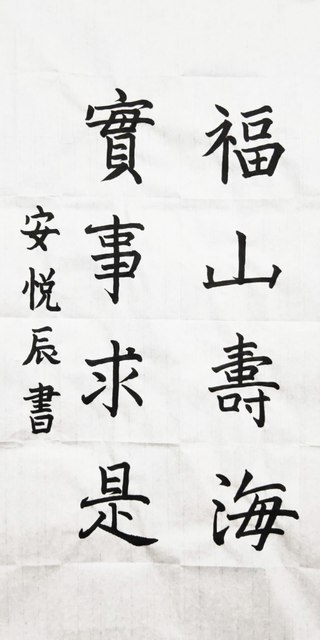 福山壽海
實事求是
安悦辰書